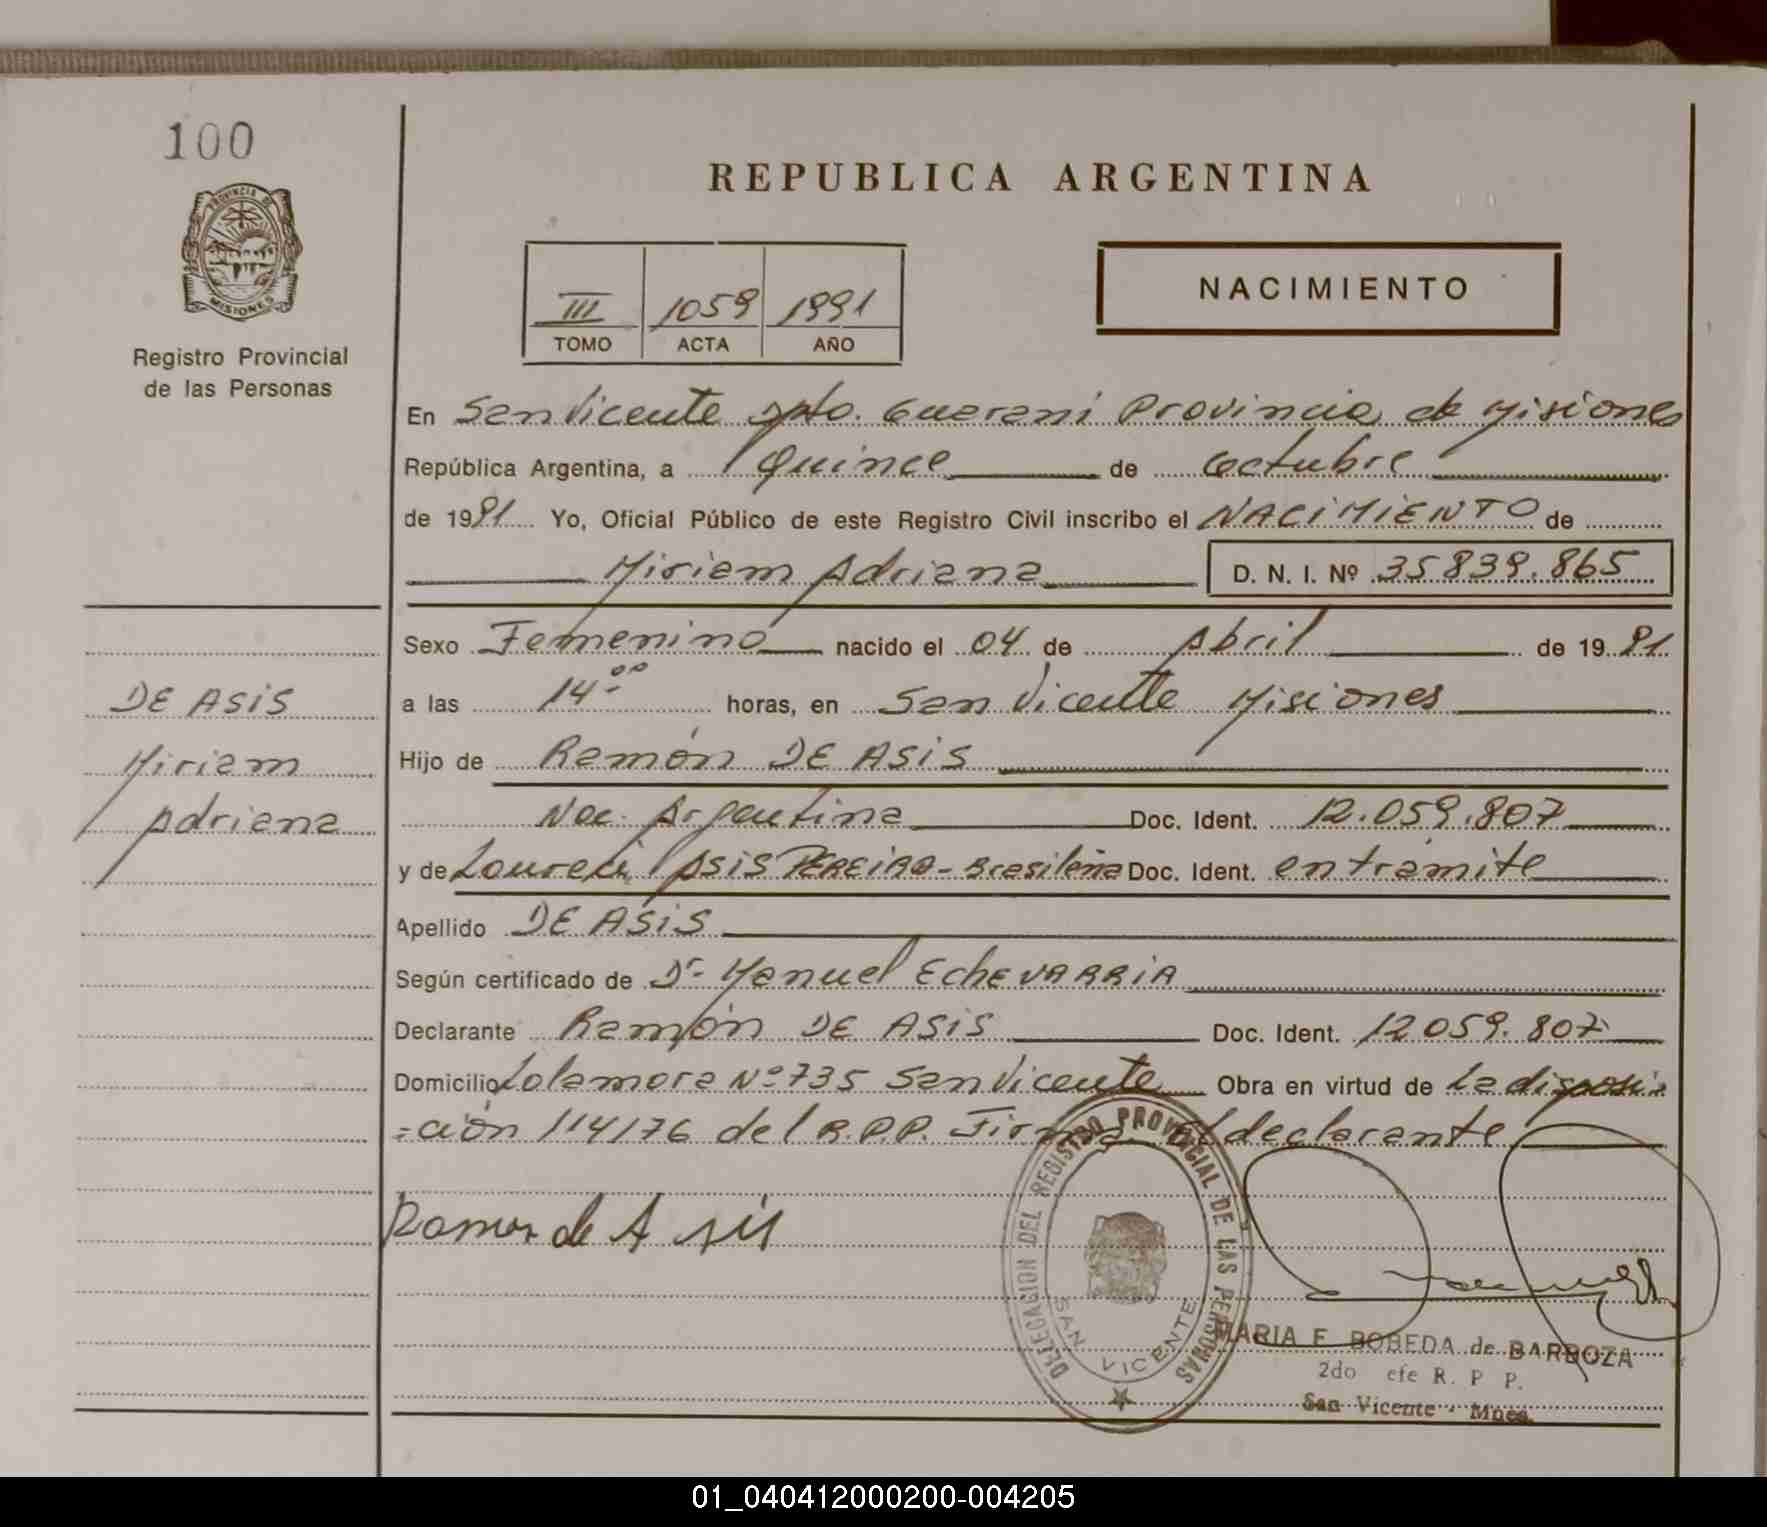 100
PROVINCIA DE
MISIONES
Registro Provincial
de las Personas
REPUBLICA ARGENTINA
NACIMIENTO
III 1059 1991
TOMO ACTA AÑO
En San Vicente Dpto. Guaraní Provincia de Misiones
República Argentina, a Quince de Octubre
de 1991 Yo, Oficial Público de este Registro Civil inscribo el NACIMIENTO de
Miriam Adriana D. N. I. Nº 35839.865
Sexo Femenino nacido el 04 de Abril de 1991
a las 14:00 horas, en San Vicente Misiones
Hijo de Ramón DE ASIS
Nac. Argentina Doc. Ident. 12.059.807
y de Loureci ASIS PEREIRA - Brasileña Doc. Ident. en trámite
Apellido DE ASIS
Según certificado de Dr. Manuel EchEVARRIA
Declarante Ramón DE ASIS Doc. Ident. 12059.807
Domicilio Lolamora Nº 735 San Vicente Obra en virtud de La disposi=
=ción 114/76 del R.P.P. Firma el declarante
DE ASIS
Miriam
Adriana
Ramon de Asis
DELEGACION DEL REGISTRO PROVINCIAL DE LAS PERSONAS
SAN VICENTE
MARIA E. BOBEDA de BARBOZA
2do efe R. P P.
San Vicente - Mnes.
01_040412000200-004205